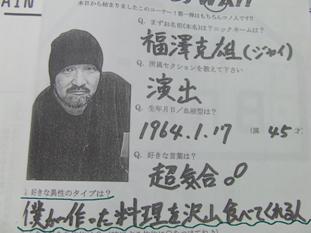 AIN
本日から始まりましたこのコーナー！第一弾はもちろんコノ人です!!
Q. まずお名前(本名)は？ニックネームは？
福澤克雄(ジャイ)
Q. 所属セクションを教えて下さい
演出
Q. 生年月日／血液型は？
1964.1.17 (満 45才)
Q. 好きな言葉は？
超気合。。
Q. 好きな異性のタイプは？
僕が作った料理を沢山食べてくれる人